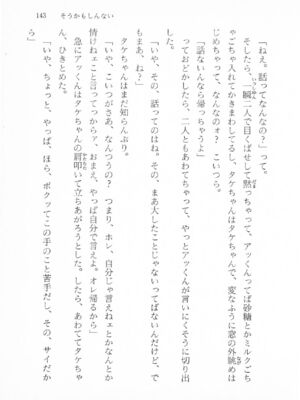 143　そうかもしんない
「ねえ。話ってなんなの？」って。
そしたら、一瞬二人で目くばせして黙っちゃって、アッくんってば砂糖とかミルクごち
ゃごちゃ入れてかきまわしてるし、タケちゃんはタケちゃんで、変なふうに窓の外眺めは
じめちゃって、なんなのォ？　こいつら。
「話ないんなら帰っちゃうよ」
っておどかしたら、二人ともあわてちゃって、やっとアッくんが言いにくそうに切り出
した。
「いや、その、話ってのはね。その、まあ大したことじゃないってばないんだけど、で
もまあ、ね？」
タケちゃんはまだ知らんぷり。
「いや、こいつがさあ、なんつうの？　つまり、ホレ、自分じゃ言えねェとかなんとか
情けねェこと言ってっからァ、おまえ、やっぱ自分で言えよ。オレ帰るから」
急にアッくんはタケちゃんの肩叩いて立ちあがろうとした。したら、あわててタケちゃ
ん、ひきとめた。
「いや、ちょっと、やっぱ、ほら、ボクってこの手のこと苦手だし、その、サイだか
ら」